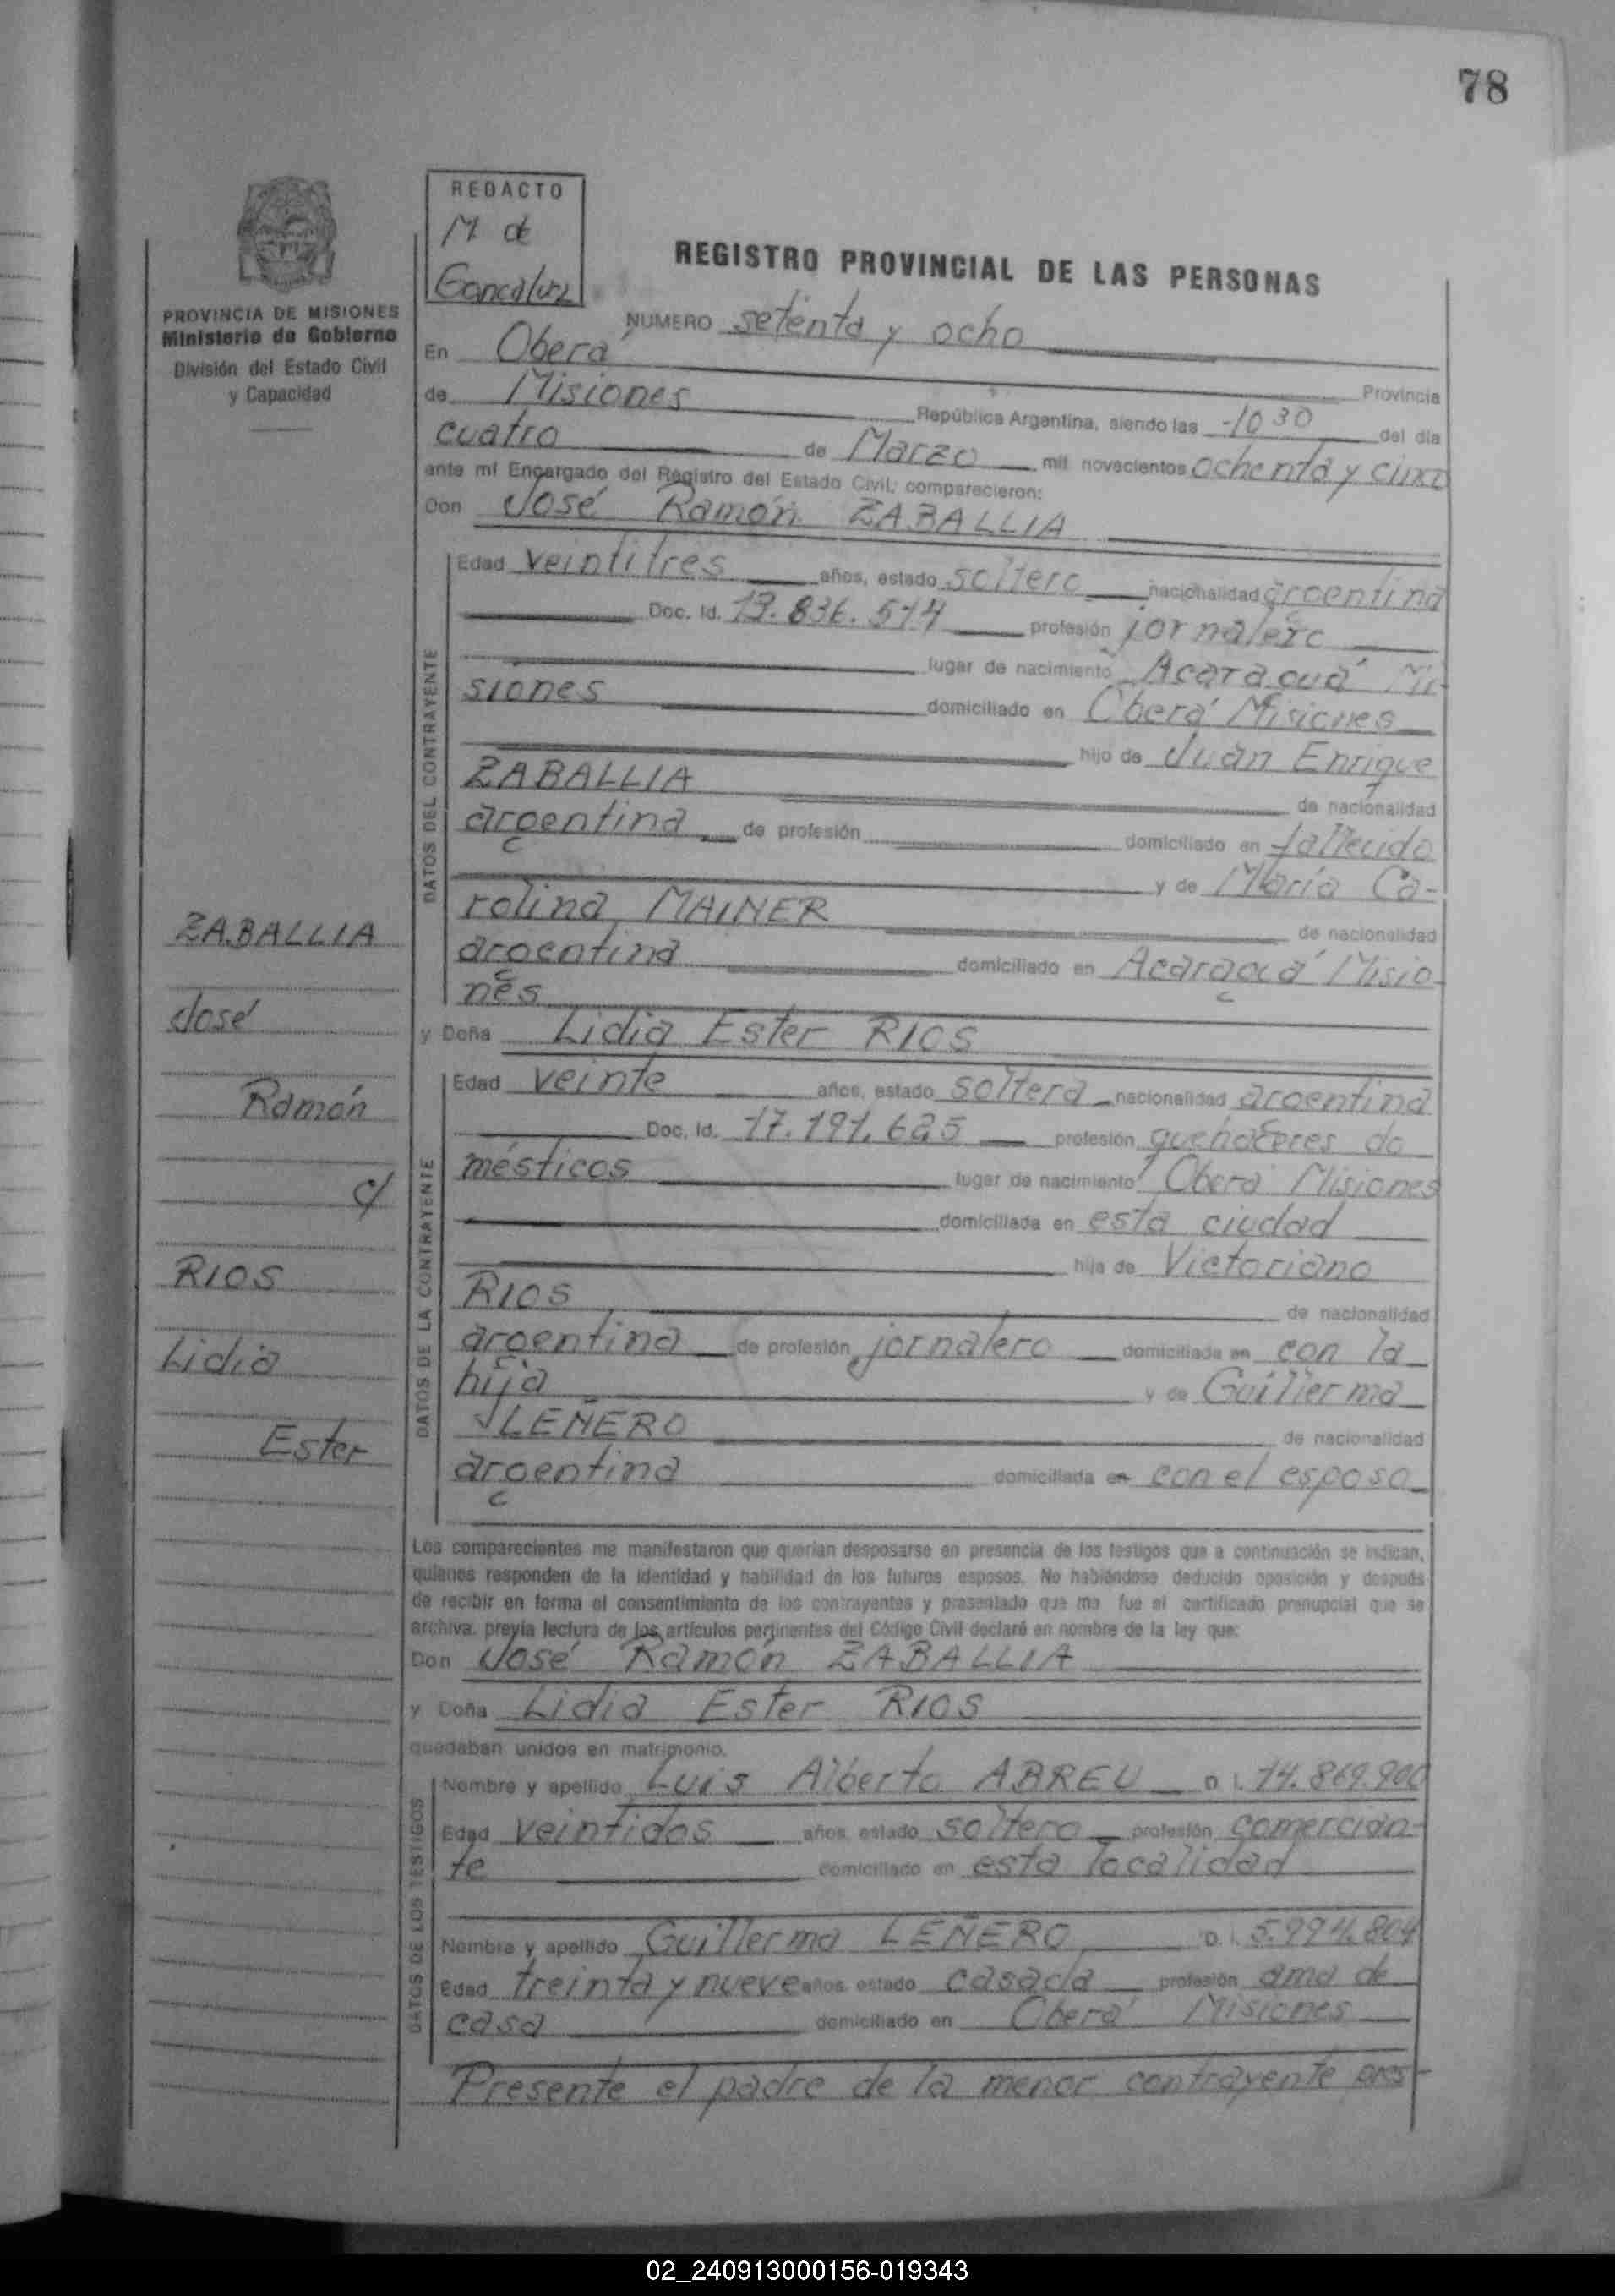 78
REDACTO
M de
PROVINCIA DE MISIONES
Ministerio de Gobierno
División del Estado Civil
y Capacidad
REGISTRO PROVINCIAL DE LAS PERSONAS
NUMERO setenta y ocho
En Oberá Provincia
de Misiones República Argentina, siendo las -10 30 del día
cuatro de Marzo mil novecientos ochenta y cinco
ante mí Encargado del Registro del Estado Civil, comparecieron:
Don José Ramón ZABALLIA
DATOS DEL CONTRAYENTE
Edad veintitres años, estado soltero nacionalidad argentina
Doc. Id. 13.836.514 profesión jornalero
lugar de nacimiento Acaraguá Mi-
siones domiciliado en Oberá Misiones
hijo de Juan Enrique
ZABALLIA de nacionalidad
argentina de profesión domiciliado en fallecido
y de María Ca-
rolina MAINER de nacionalidad
argentina domiciliado en Acaraguá Misio-
nes
y Doña Lidia Ester RIOS
DATOS DE LA CONTRAYENTE
Edad veinte años, estado soltera nacionalidad argentina
Doc. Id. 17.191.625 profesión quehaceres do
mésticos lugar de nacimiento Oberá Misiones
domiciliada en esta ciudad
hija de Victoriano
RIOS de nacionalidad
argentina de profesión jornalero domiciliada en con la
hija y de Guillerma
LEÑERO de nacionalidad
argentina domiciliada en con el esposo
ZABALLIA
José
Ramón
c/
RIOS
Lidia
Ester
Los comparecientes me manifestaron que querían desposarse en presencia de los testigos que a continuación se indican,
quienes responden de la identidad y habilidad de los futuros esposos. No habiéndose deducido oposición y después
de recibir en forma el consentimiento de los contrayentes y presentado que me fue el certificado prenupcial que se
archiva, previa lectura de los artículos pertinentes del Código Civil declaré en nombre de la ley que:
Don José Ramón ZABALLIA
y Doña Lidia Ester RIOS
quedaban unidos en matrimonio.
DATOS DE LOS TESTIGOS
Nombre y apellido Luis Alberto ABREU D. I. 14.869.900
Edad veintidos años, estado soltero profesión comercian-
te domiciliado en esta localidad
Nombre y apellido Guillerma LEÑERO D. I. 5.994.804
Edad treinta y nueve años, estado casada profesión ama de
casa domiciliado en Oberá Misiones
Presente el padre de la menor contrayente pres-
02_240913000156-019343